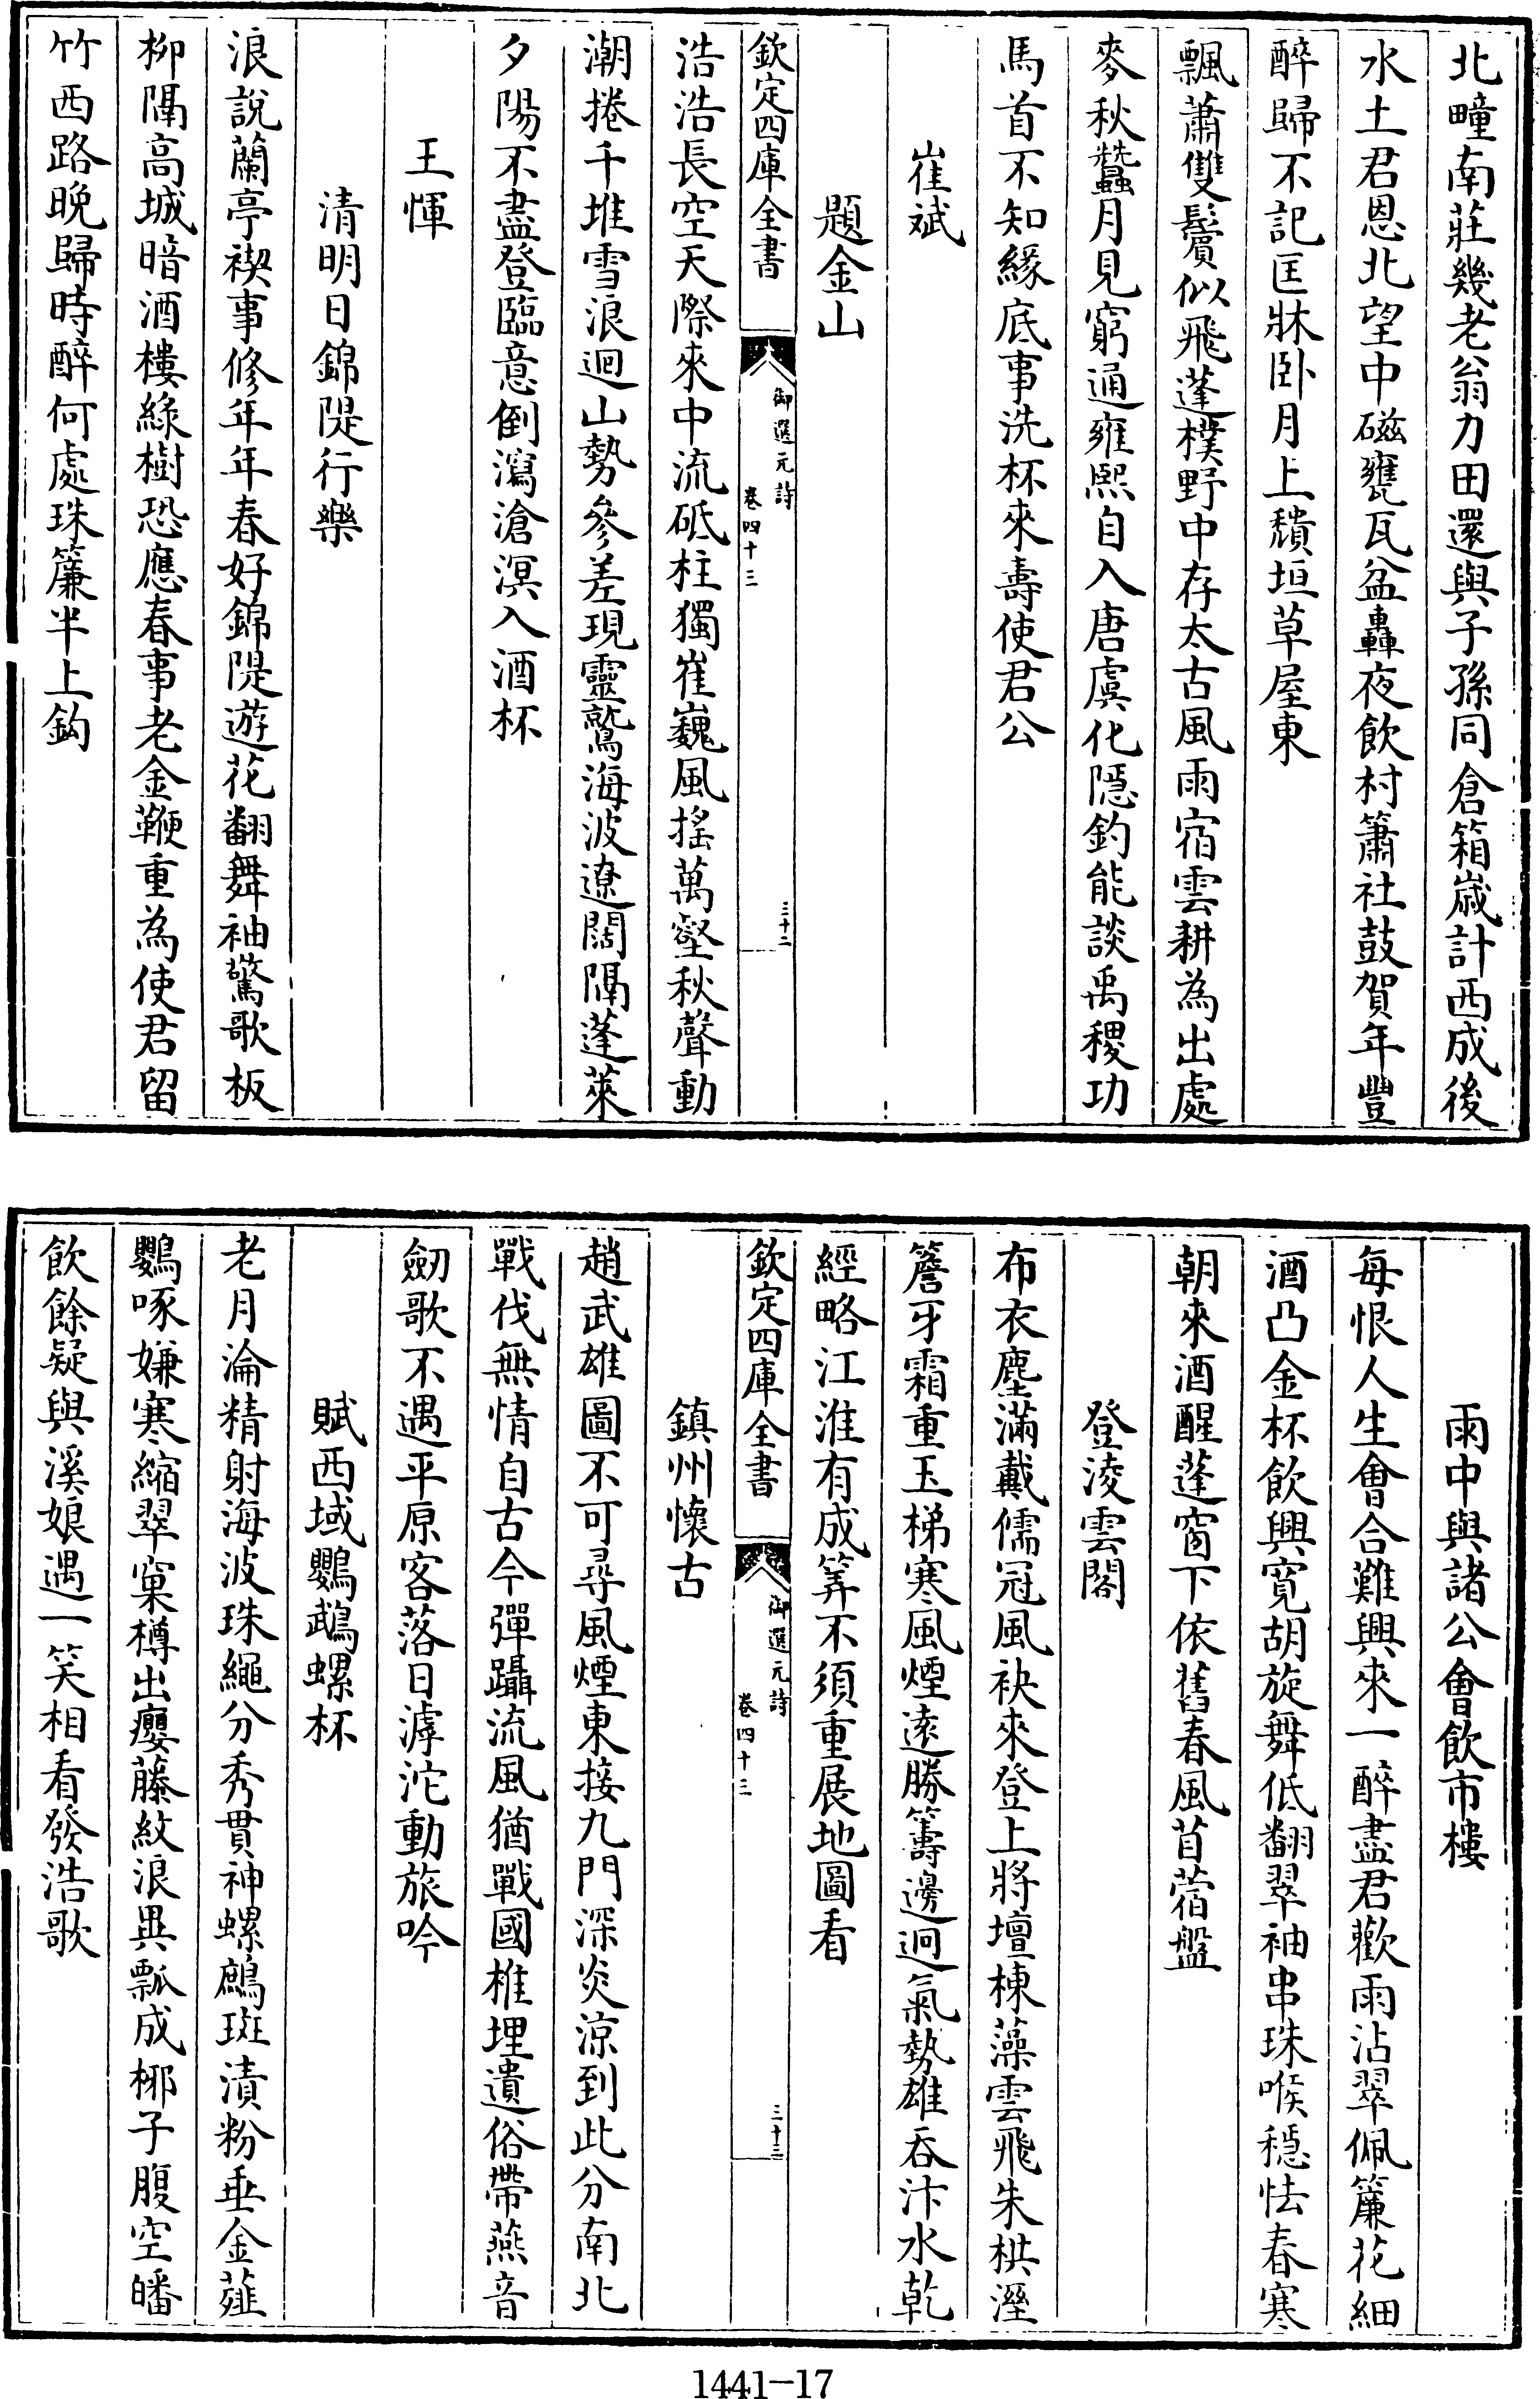 北疃南莊幾老翁力田還與子孫同倉箱嵗計西成後
水土君恩北望中磁甕瓦盆轟夜飲村簫社鼓賀年豐
醉歸不記匡牀卧月上頽垣草屋東
飄蕭雙鬢似飛蓬樸野中存太古風雨宿雲耕為出處
麥秋蠶月見窮通雍熙自入唐虞化隠釣能談禹稷功
馬首不知緣底事洗杯來壽使君公
崔斌
題金山
欽定四庫全書
御選元詩
卷四十三
三十二
浩浩長空天際來中流砥柱獨崔巍風揺萬壑秋聲動
潮捲千堆雪浪迴山勢參差現靈鷲海波遼闊隔蓬萊
夕陽不盡登臨意倒瀉滄溟入酒杯
王惲
清明日錦隄行樂
浪說蘭亭禊事修年年春好錦隄遊花翻舞袖驚歌板
柳隔高城暗酒樓綠樹恐應春事老金鞭重為使君留
竹西路晚歸時醉何處珠簾半上鈎
雨中與諸公會飲市樓
每恨人生會合難興來一醉盡君歡雨沾翠佩簾花細
酒凸金杯飲興寛胡旋舞低翻翠袖串珠喉穏怯春寒
朝來酒醒蓬窗下依舊春風苜蓿盤
登淩雲閣
布衣塵滿戴儒冠風袂來登上將壇棟藻雲飛朱栱溼
簷牙霜重玉梯寒風煙遠勝籌邊迥氣勢雄吞汴水乾
經略江淮有成筭不須重展地圖看
欽定四庫全書
御選元詩
卷四十三
三十三
鎮州懷古
趙武雄圖不可尋風煙東接九門深炎涼到此分南北
戰伐無情自古今彈躡流風猶戰國椎埋遺俗帶燕音
劒歌不遇平原客落日滹沱動旅吟
賦西域鸚鵡螺杯
老月淪精射海波珠繩分秀貫神螺鷓斑漬粉垂金薤
鸚啄嫌寒縮翠窠樽出癭藤紋浪異瓢成椰子腹空皤
飲餘疑與溪娘遇一笑相看發浩歌
1441-17